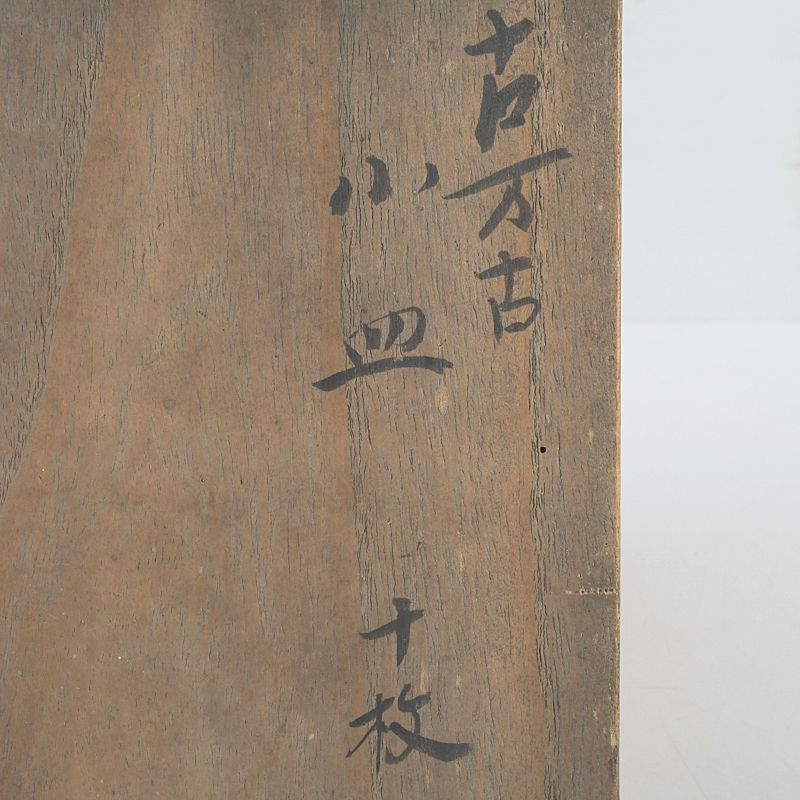 古万古
小皿 十枚